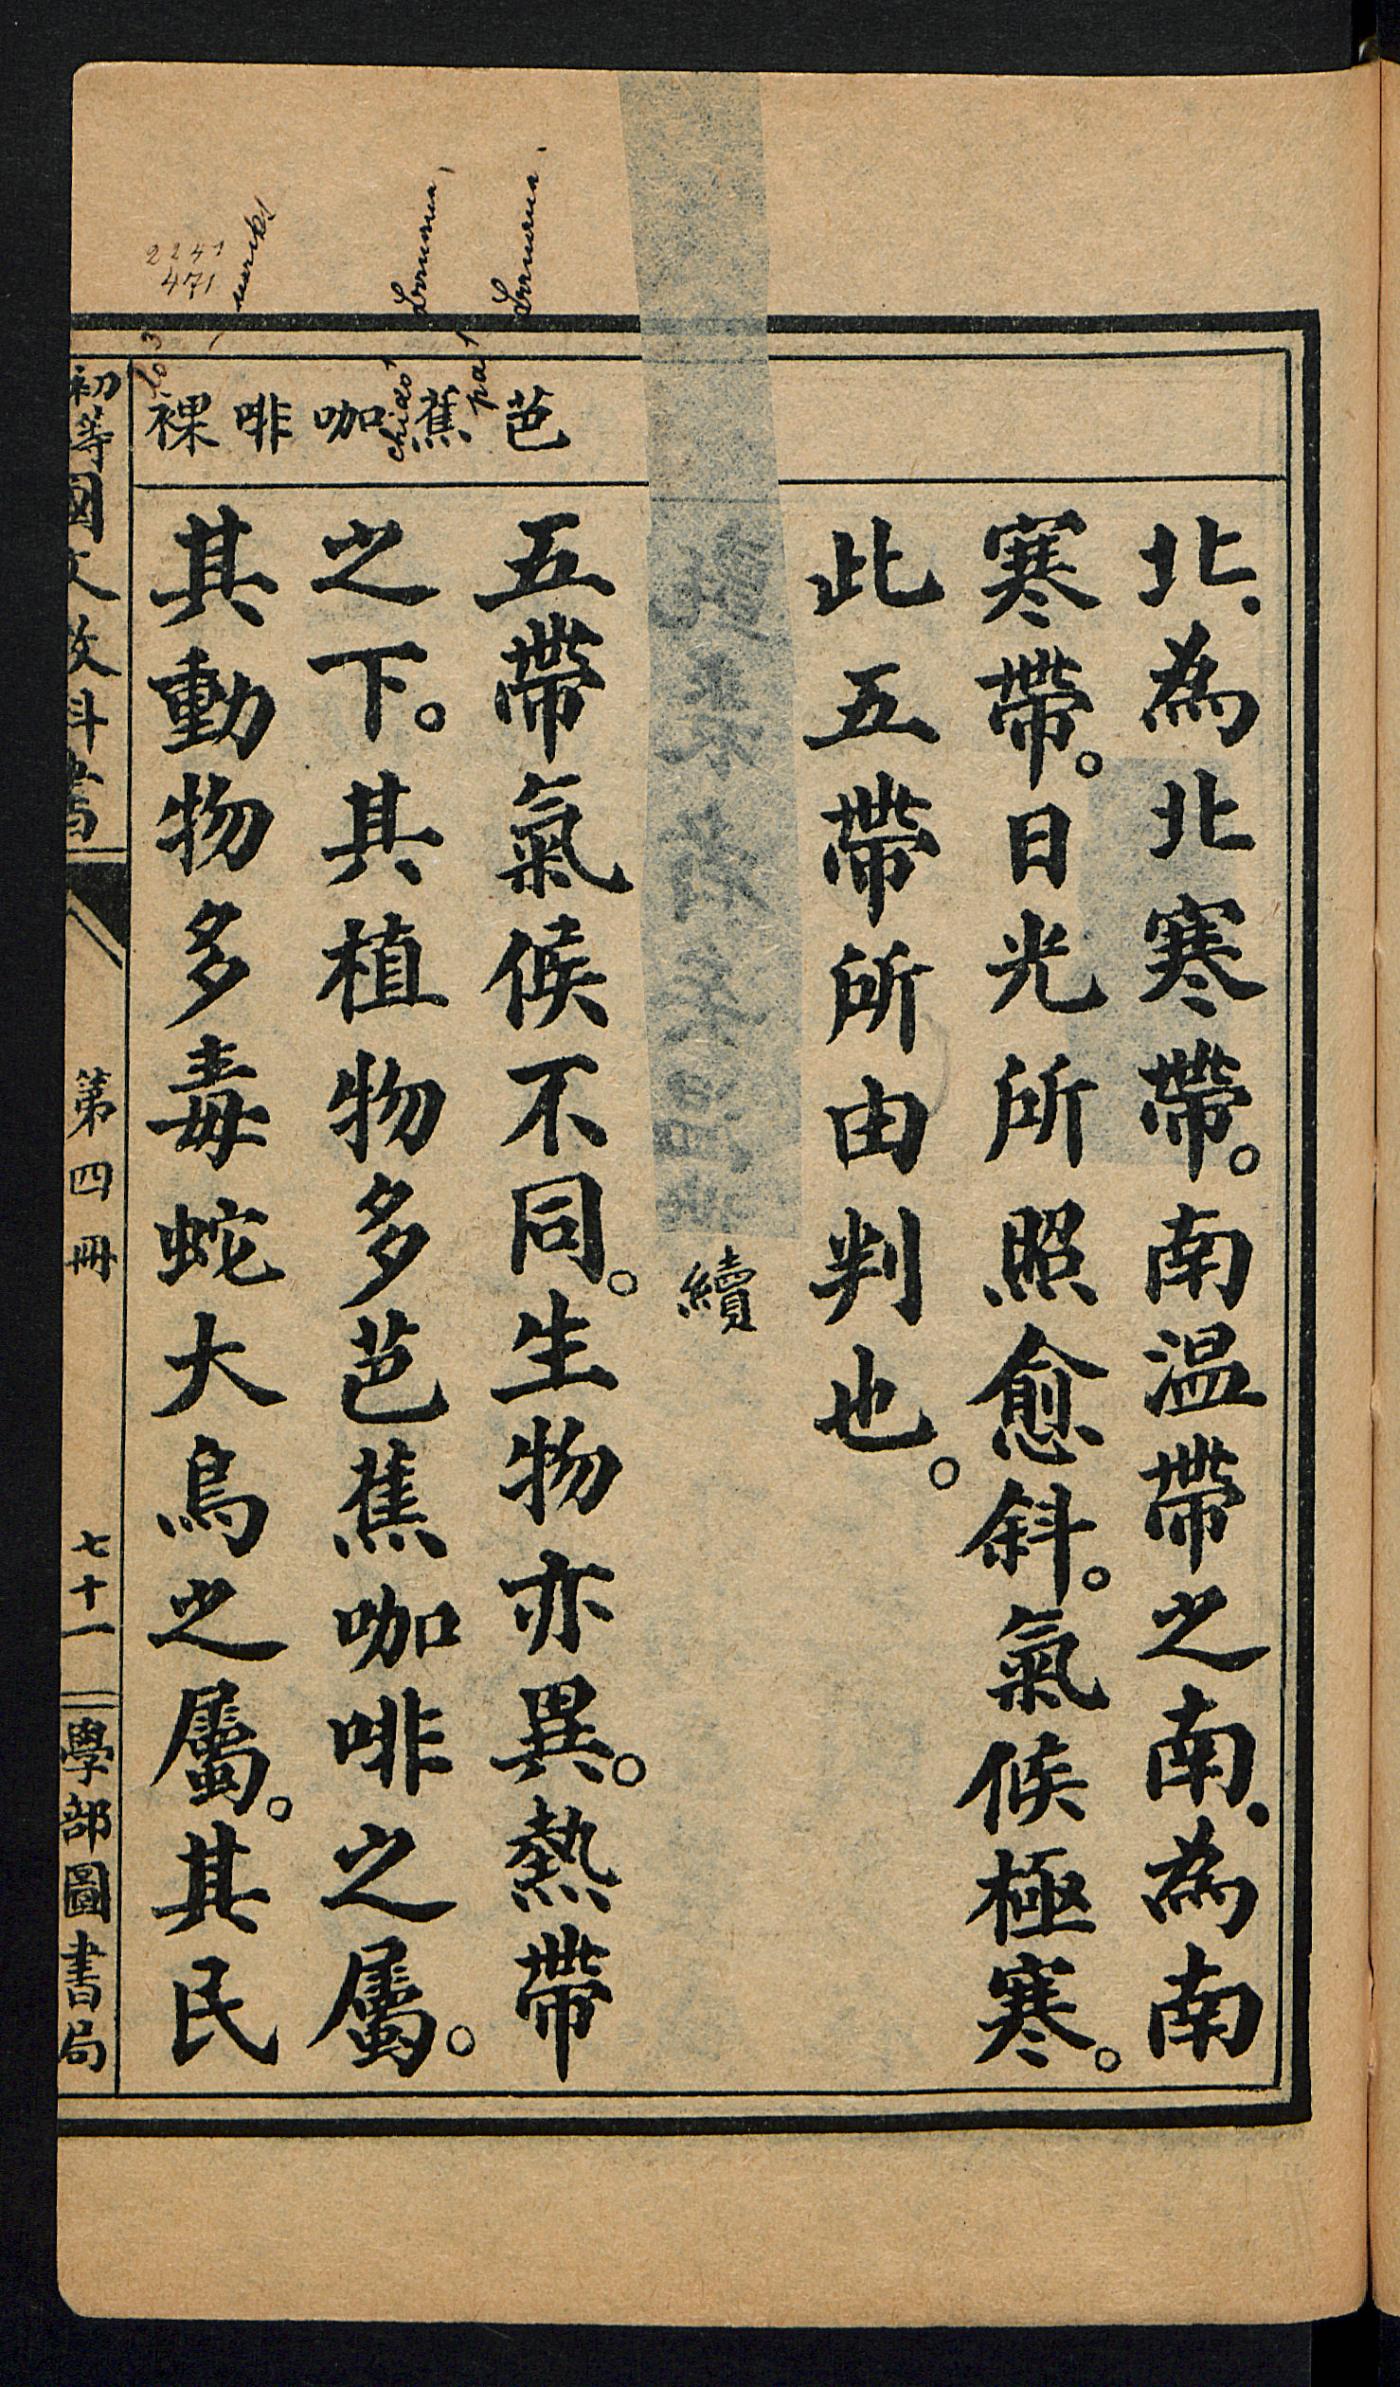 北．為北寒帶。南温帶之南．為南
寒帶。日光所照愈斜。氣候極寒。
此五帶所由判也。
續
五帶氣候不同。生物亦異。熱帶
之下。其植物多芭蕉咖啡之屬。
其動物多毒蛇大鳥之屬。其民
芭
蕉
咖
啡
裸
初等國文教科書
第四冊
七十一
學部圖書局
pa1
chiao1
lo3
2241
471